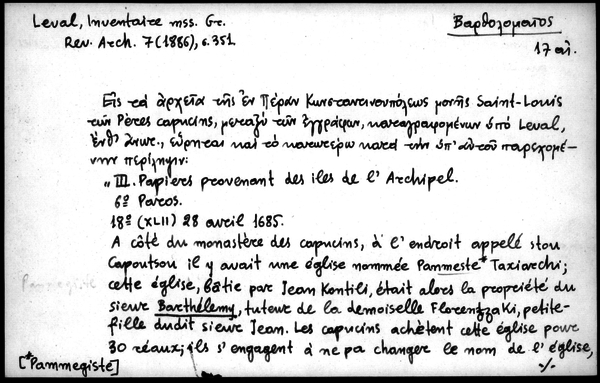 Leval, Inventaire mss. Gr.
Rev. Arch. 7 (1886), σ. 351
Βαρθολομαῖος
17 αἰ.
Εἰς τά ἀρχεῖα τῆς ἐν Πέραν Κωνσταντινουπόλεως μονῆς Saint-Louis
τῶν Pères capucins, μεταξύ τῶν ἐγγράφων, καταγραφομένων ὑπό Leval,
ἔνθ' ἀνωτ., εὕρηται καί τό κατωτέρω κατά τήν ὑπ' αὐτοῦ παρεχομέ-
νην περίληψιν:
„ III. Papiers provenant des iles de l'Archipel.
6º Paros.
18º (XLII) 28 avril 1685.
A côté du monastère des capucins, à l'endroit appelé stou
Capoutsou il y avait une église nommée Pammeste* Taxiarchi;
cette église, bâtie par Jean Kontili, était alors la propriété du
sieur Barthélemy, tuteur de la demoiselle Florentzaki, petite-
fille dudit sieur Jean. Les capucins achètent cette église pour
30 réaux; ils s'engagent à ne pa changer le nom de l'église,
[*Pammegiste]
./.